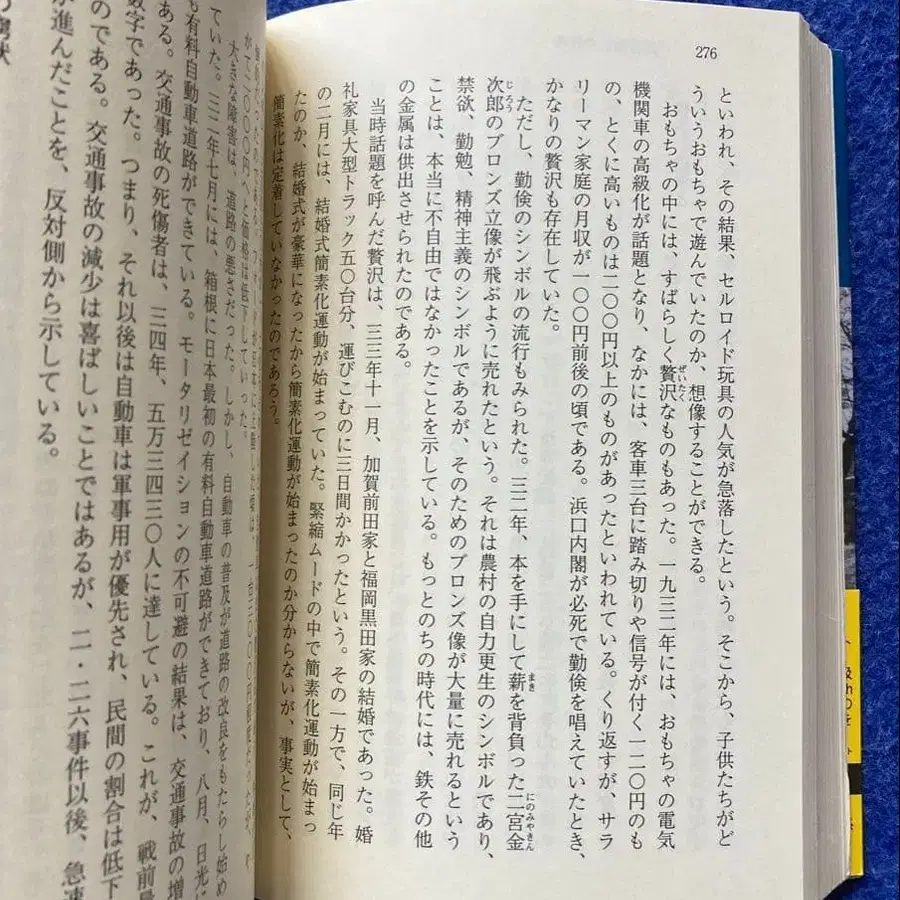 276
といわれ、その結果、セルロイド玩具の人気が急落したという。そこから、子供たちがど
ういうおもちゃで遊んでいたのか、想像することができる。
おもちゃの中には、すばらしく贅沢なものもあった。一九三二年には、おもちゃの電気
機関車の高級化が話題となり、なかには、客車三台に踏み切りや信号が付く一二〇円のも
の、とくに高いものは二〇〇円以上のものがあったといわれている。くり返すが、サラ
リーマン家庭の月収が一〇〇円前後の頃である。浜口内閣が必死で勤倹を唱えていたとき、
かなりの贅沢も存在していた。
ただし、勤倹のシンボルの流行もみられた。三二年、本を手にして薪を背負った二宮金
次郎のブロンズ立像が飛ぶように売れたという。それは農村の自力更生のシンボルであり、
禁欲、勤勉、精神主義のシンボルであるが、そのためのブロンズ像が大量に売れるという
ことは、本当に不自由ではなかったことを示している。もっとのちの時代には、鉄その他
の金属は供出させられたのである。
当時話題を呼んだ贅沢は、三三年十一月、加賀前田家と福岡黒田家の結婚であった。婚
礼家具大型トラック五〇台分、運びこむのに三日間かかったという。その一方で、同じ年
の二月には、結婚式簡素化運動が始まっていた。緊縮ムードの中で簡素化運動が始まっ
たのか、結婚式が豪華になったから簡素化運動が始まったのか分からないが、事実として、
簡素化は定着していなかったのであろう。
大きな障害は、道路の悪さだった。しかし、自動車の普及が道路の改良をもたらし始め
ていた。三二年七月には、箱根に日本最初の有料自動車道路ができており、八月、日光に
も有料自動車道路ができている。モータリゼイションの不可避の結果は、交通事故の増
ある。交通事故の死傷者は、三四年、五万三四三〇人に達している。これが、戦前最
数字であった。つまり、それ以後は自動車は軍事用が優先され、民間の割合は低下
のである。交通事故の減少は喜ばしいことではあるが、二・二六事件以後、急速
が進んだことを、反対側から示している。